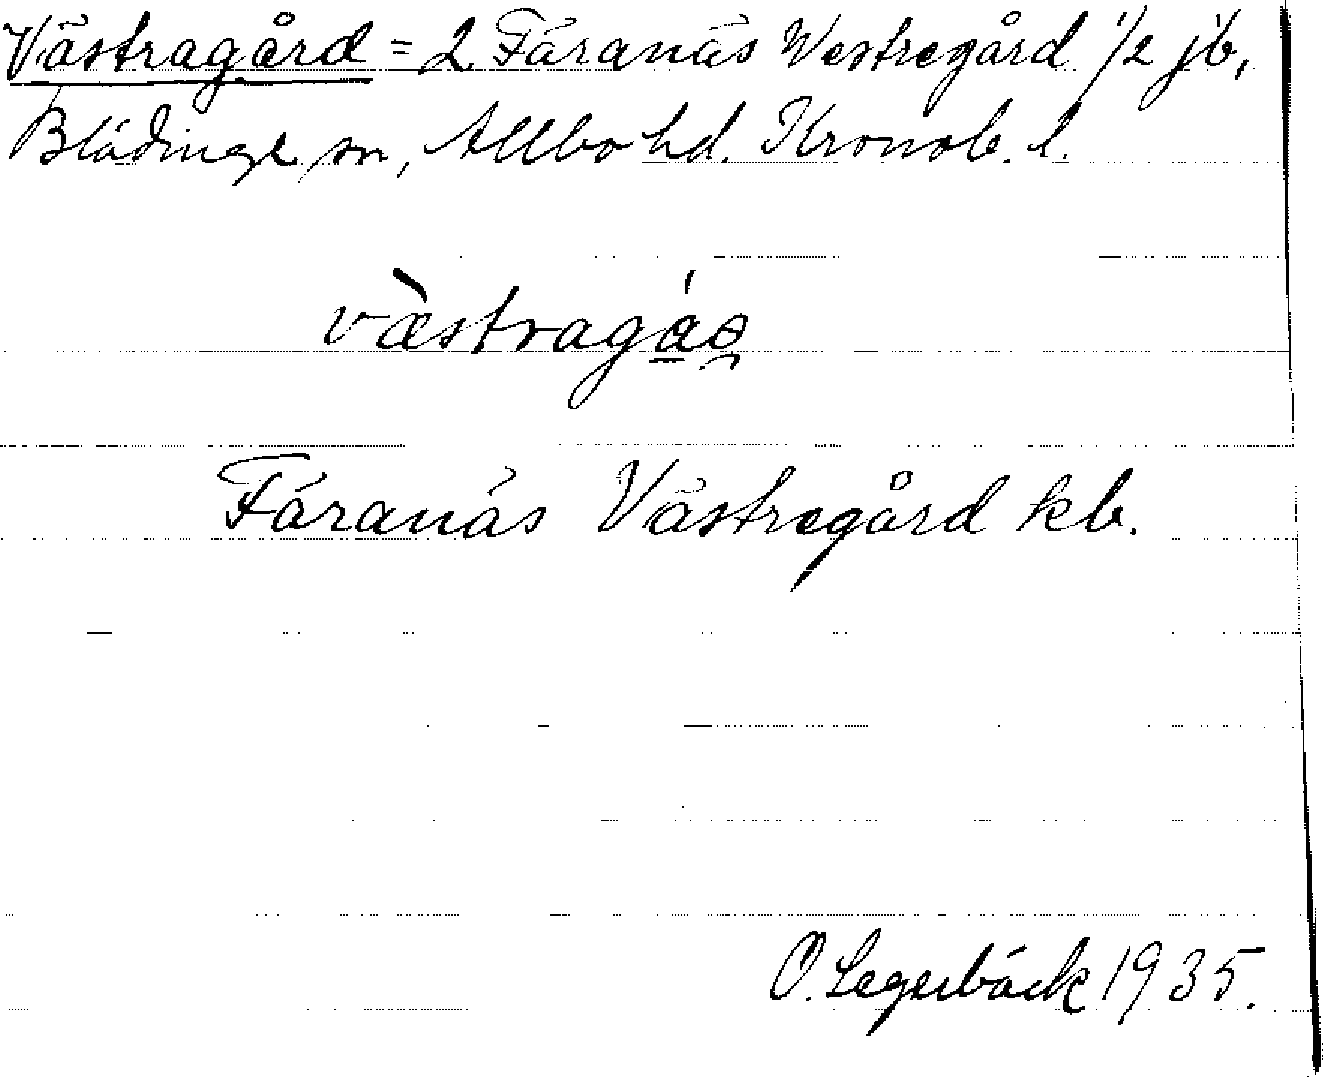 Västragård = 2 Färanäs Westregård 1/2 jb,
Blädinge sn, Allbo hd. Kronob. l.
Färanäs Västregård kb.
O. Legerbäck 1935.